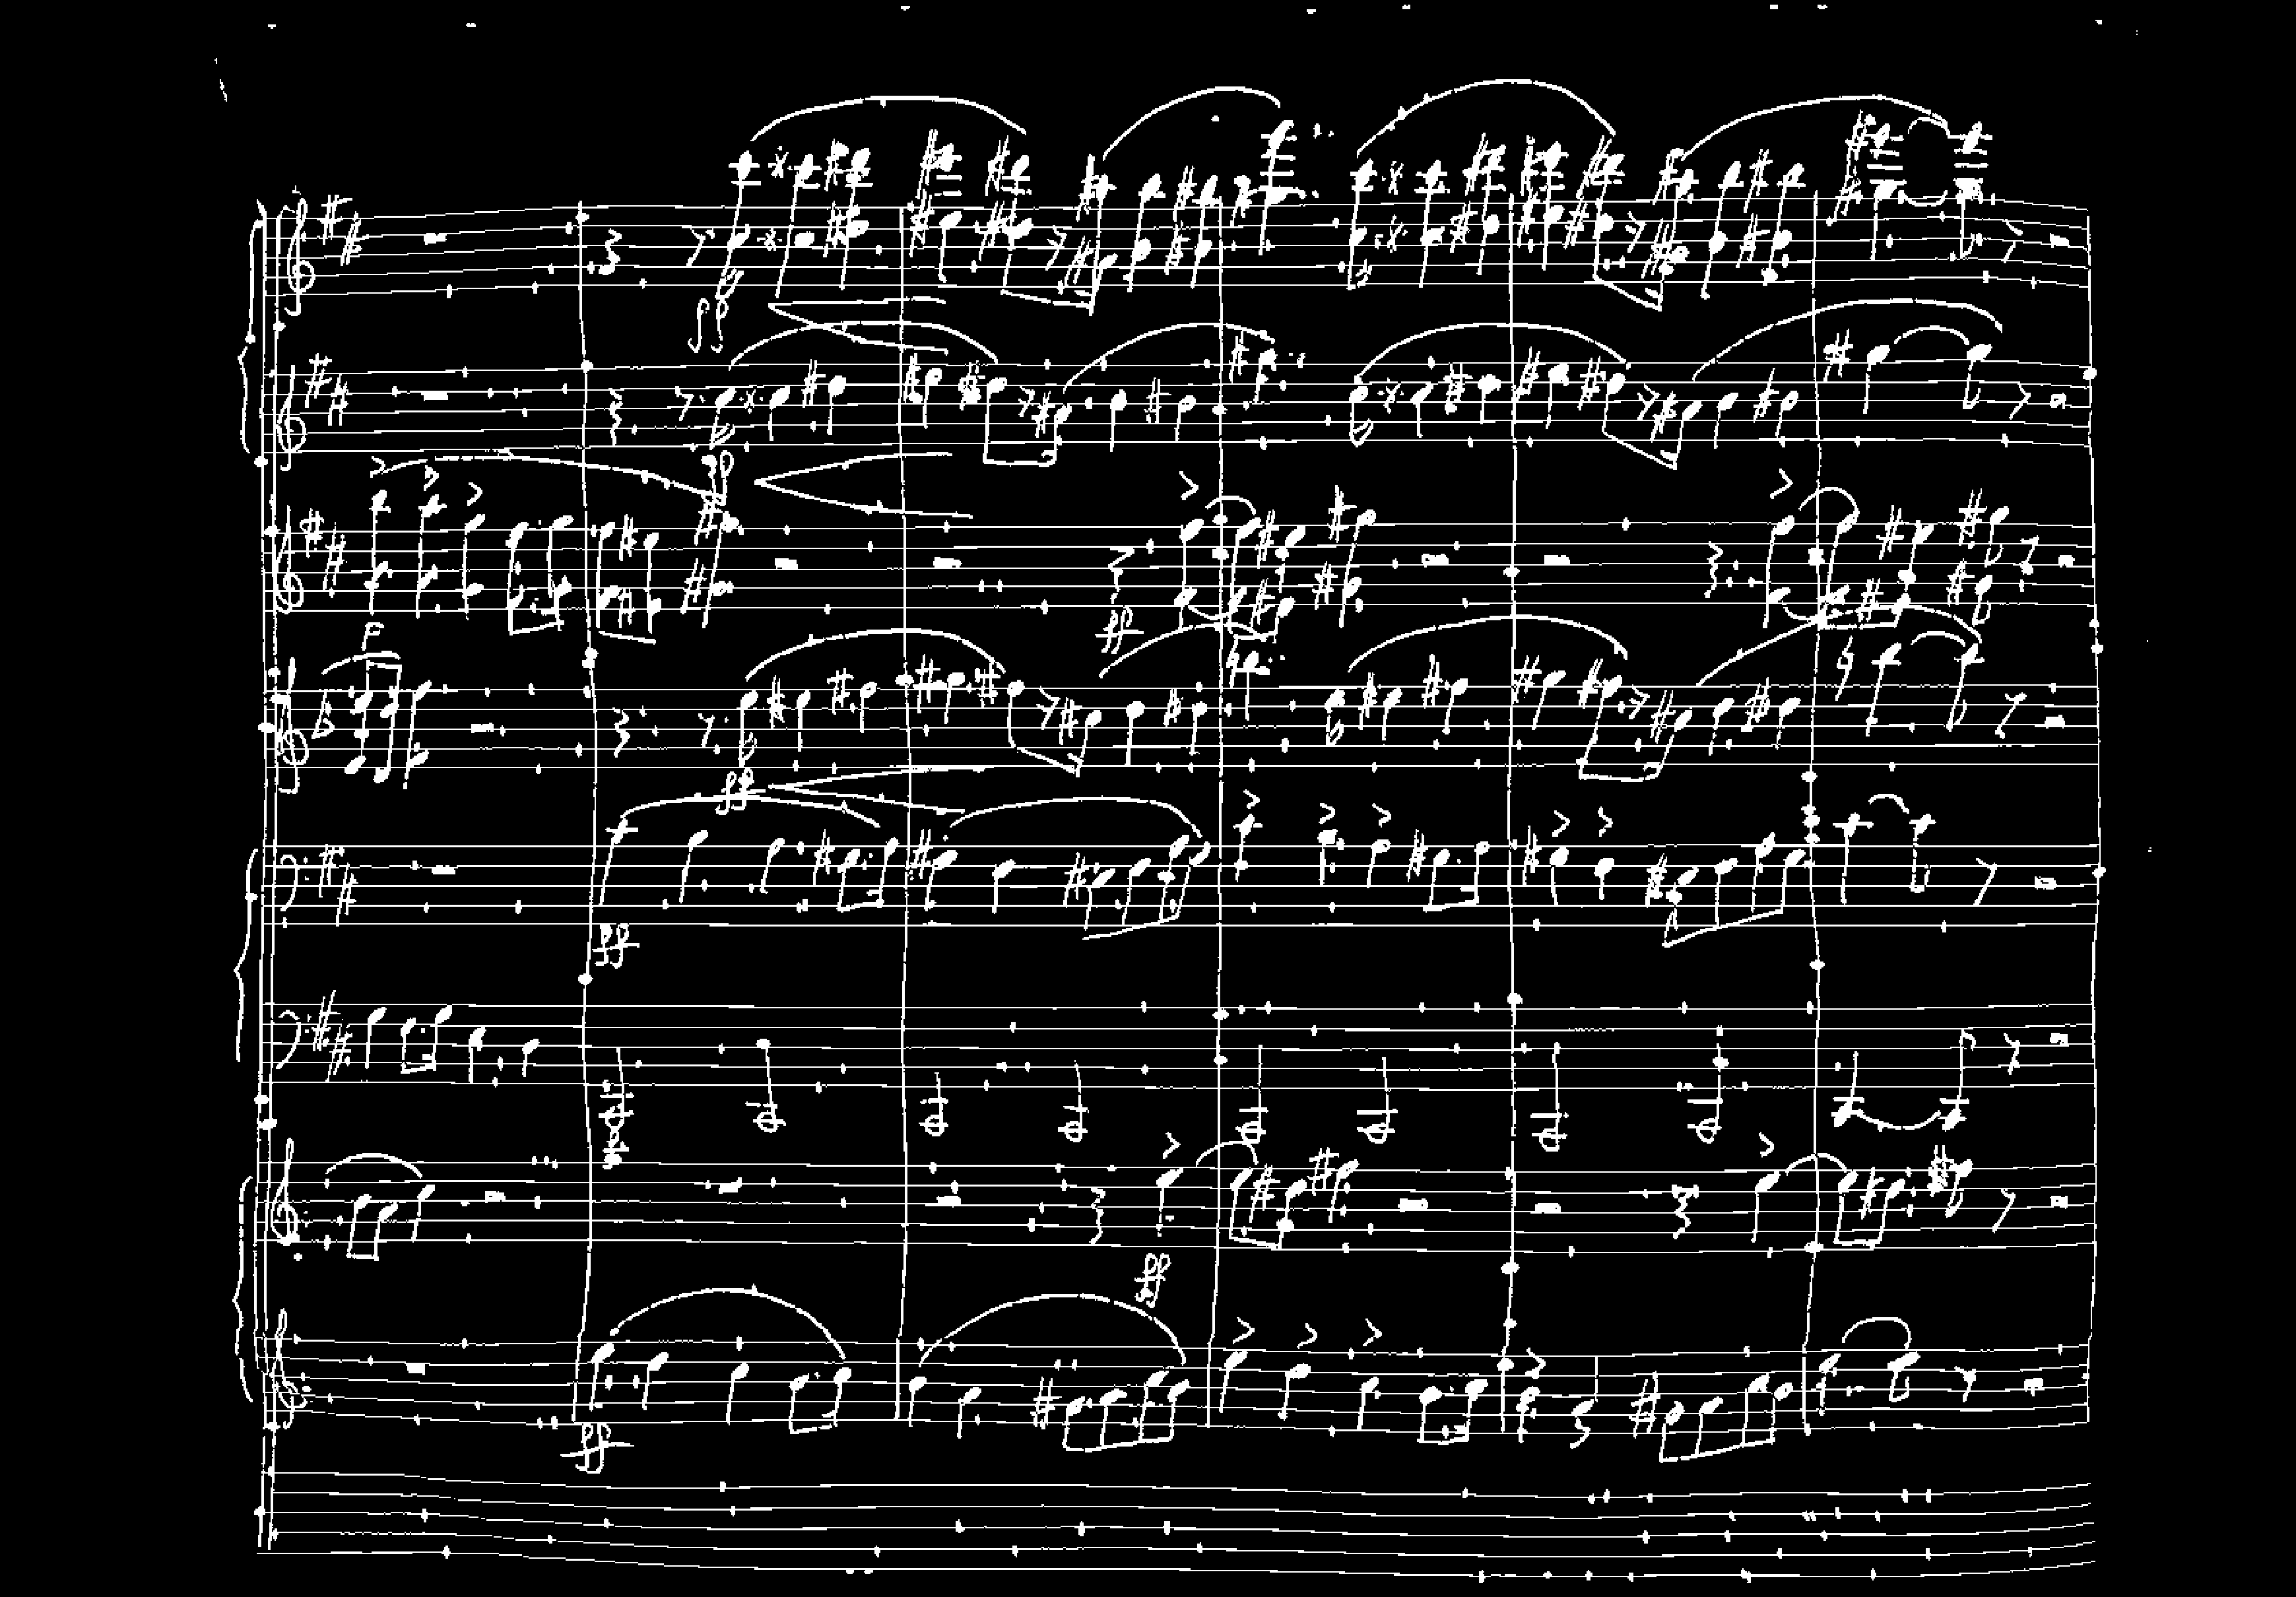 ff
P
ff
ff
ff
ff
ff